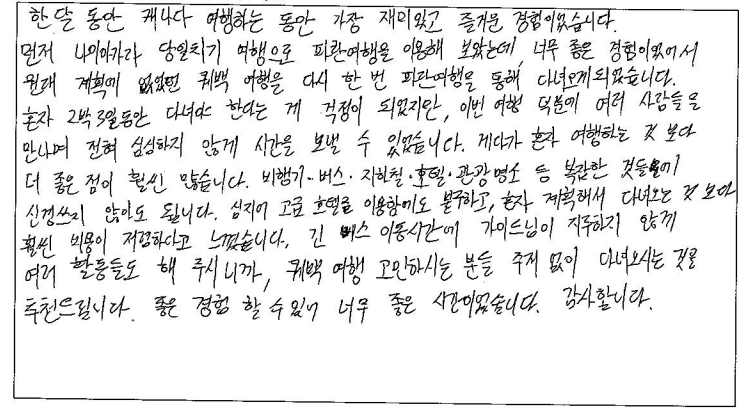 한 달 동안 캐나다 여행하는 동안 가장 재미있고 즐거운 경험이었습니다.
먼저 나이아가라 당일치기 여행으로 파란여행을 이용해 보았는데, 너무 좋은 경험이었어서
원래 계획에 없었던 퀘백 여행을 다시 한 번 파란여행을 통해 다녀오게되었습니다.
혼자 2박 3일동안 다녀야 한다는 게 걱정이 되었지만, 이번 여행 덕분에 여러 사람들을
만나며 전혀 심심하지 않게 시간을 보낼 수 있었습니다. 게다가 혼자 여행하는 것 보다
더 좋은 점이 훨씬 많습니다. 비행기·버스·지하철·호텔·관광명소 등 복잡한 것들에
신경쓰지 않아도 됩니다. 심지어 고급 호텔을 이용함에도 불구하고, 혼자 계획해서 다녀오는 것 보다
훨씬 비용이 저렴하다고 느꼈습니다. 긴 버스 이동시간에 가이드님이 지루하지 않게
여러 활동들도 해 주시니까, 퀘백 여행 고민하시는 분들 주저 없이 다녀오시는 것을
추천드립니다. 좋은 경험 할 수 있어 너무 좋은 시간이었습니다. 감사합니다.